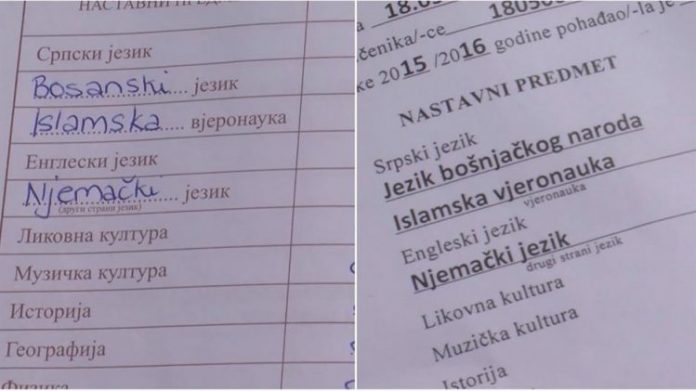 НАСТАВНИ
Српски језик
Bosanski језик
Islamska вјеронаука
Енглески језик
Njemački језик
(други страни језик)
Ликовна култура
Музичка култура
Историја
Географија
Физика
18.03
čenika/-ce 180306
ke 2015 /2016 godine pohađao/-la je
NASTAVNI PREDMET
Srpski jezik
Jezik bošnjačkog naroda
Islamska vjeronauka
vjeronauka
Engleski jezik
Njemački jezik
drugi strani jezik
Likovna kultura
Muzička kultura
Istorija